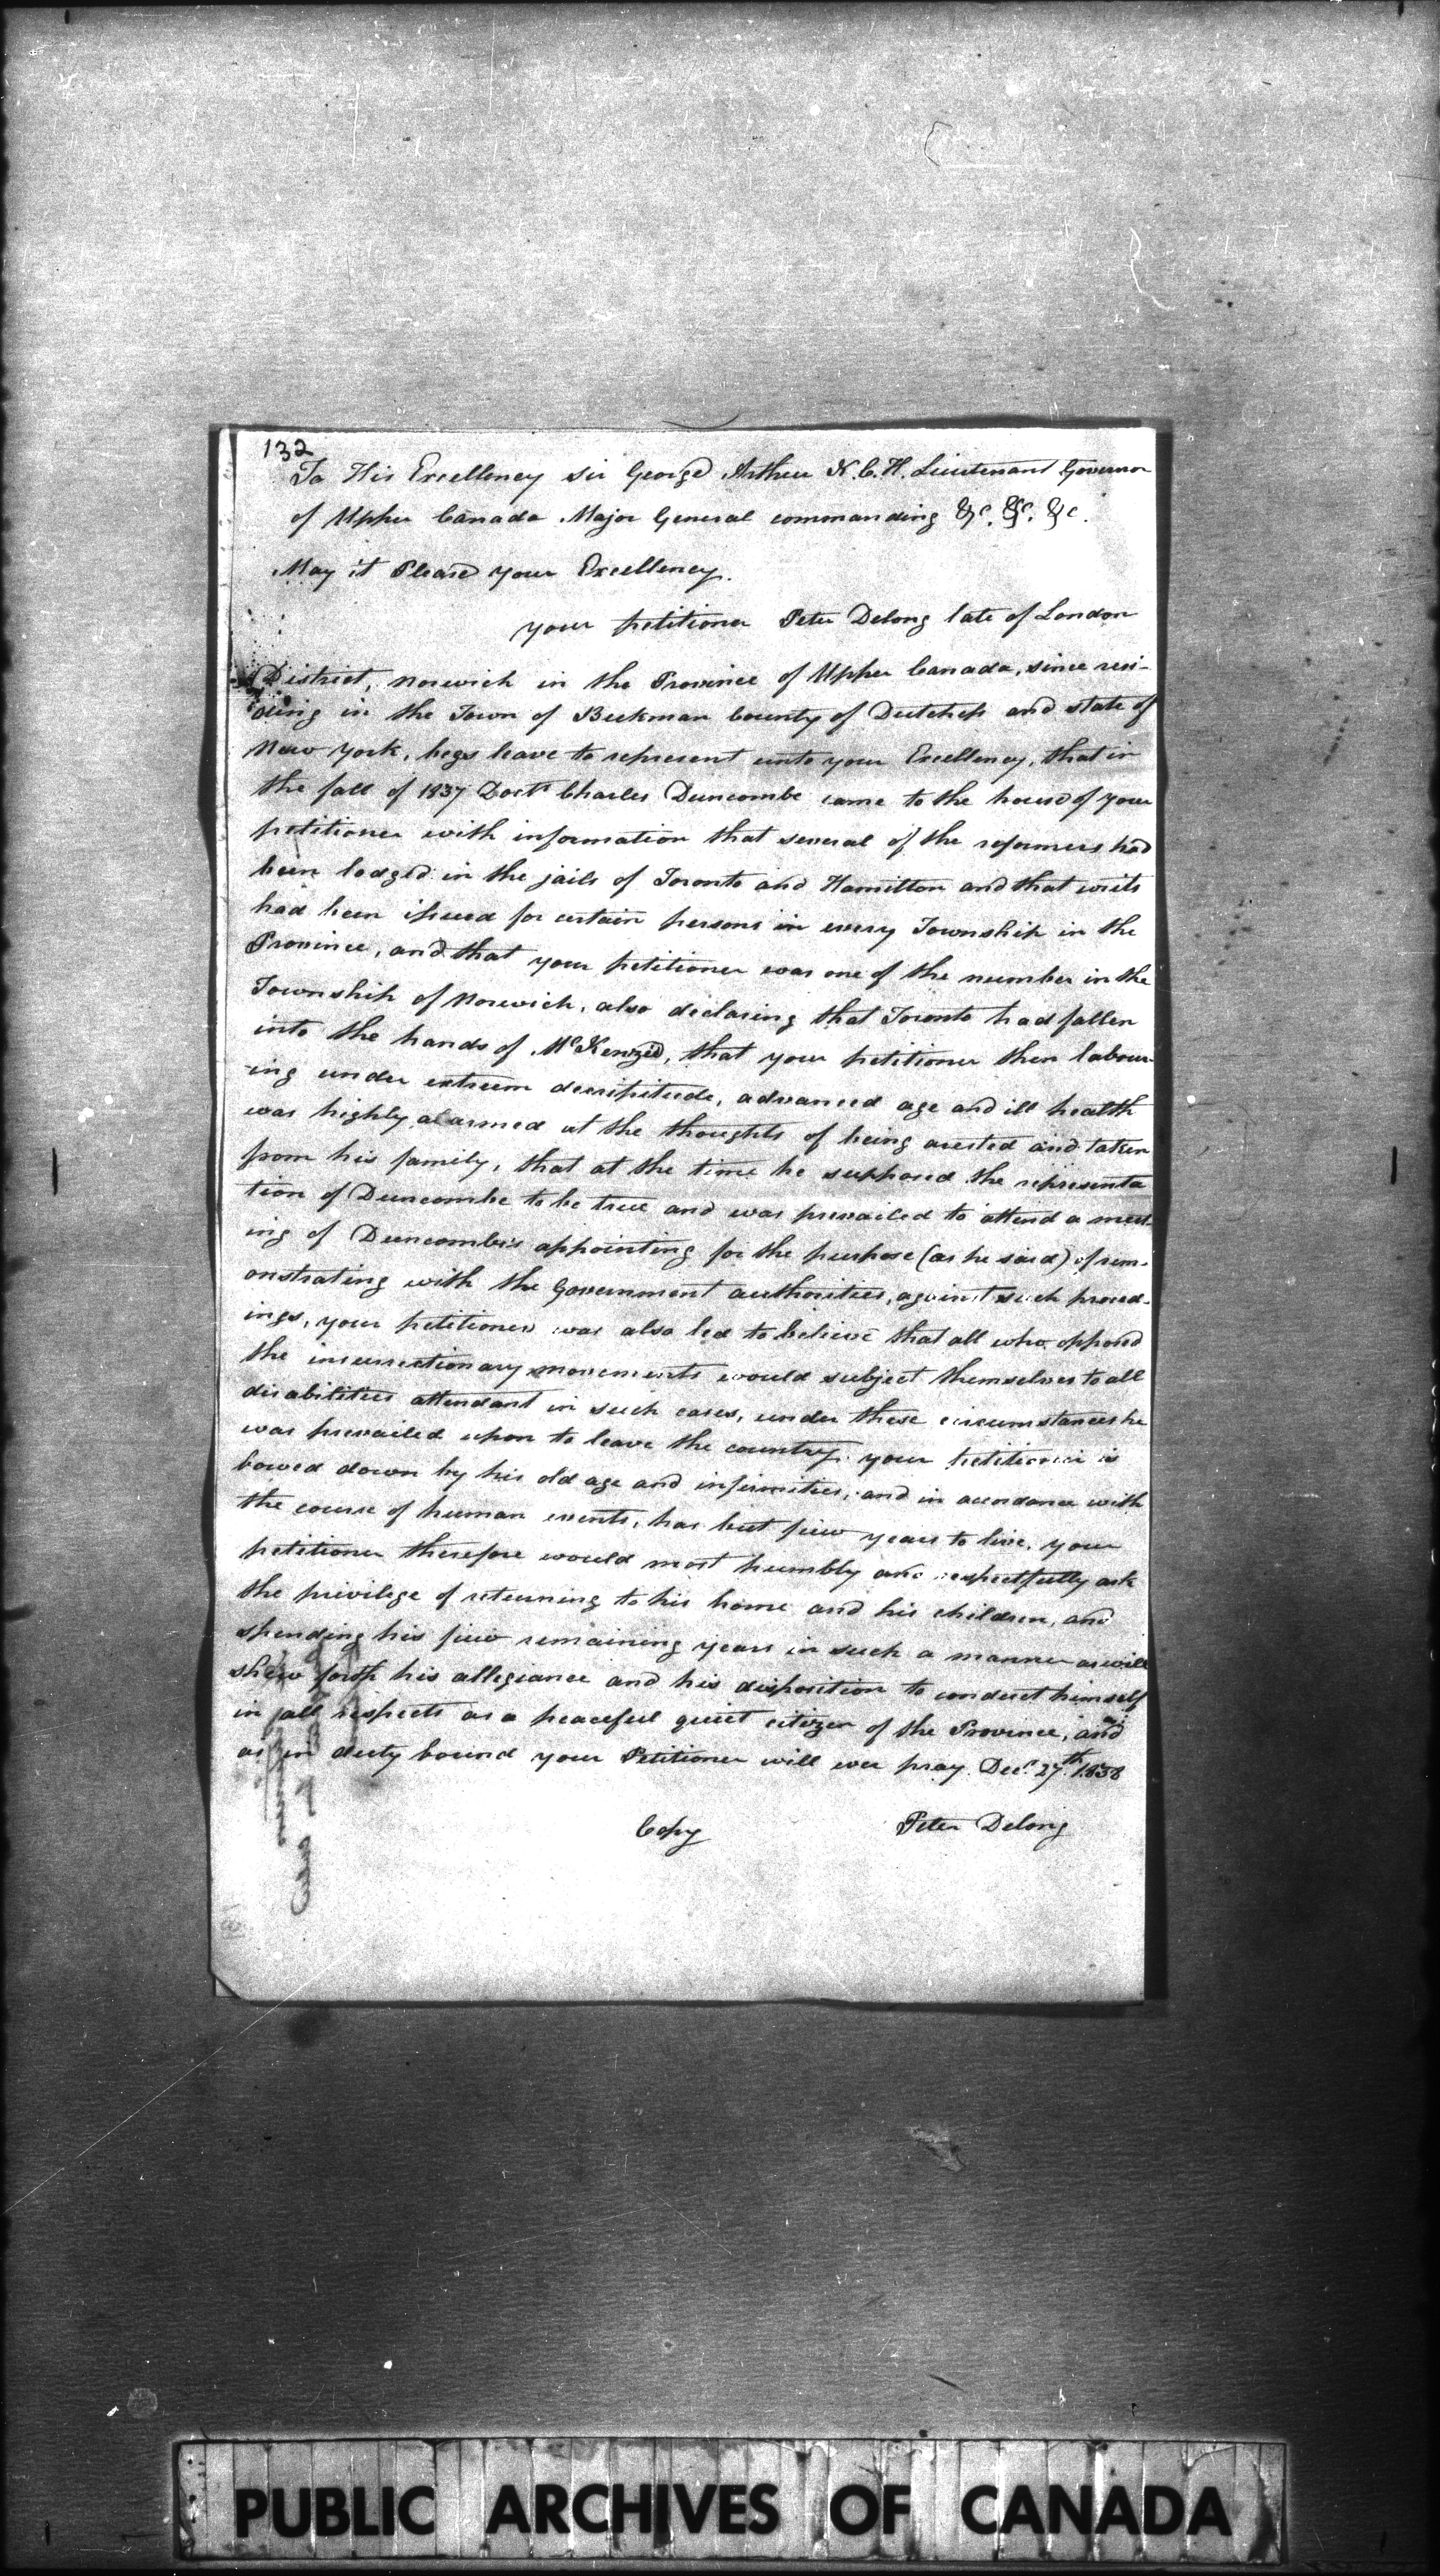 132
To His Excellency sir George Arthur K.C.H. Lieutenant Governor
of Upper Canada Major General commanding &c. &c. &c.
May it Please your Excellency.
your petitioner Peter Delong late of London
District, Norwich in the Province of Upper Canada, since resi-
ding in the Town of Beekman County of Dutchess and state of
New York, begs leave to represent unto your Excellency, that in
the fall of 1837 Doctr Charles Duncombe came to the house of your
petitioner with information that several of the reformers had
been lodged in the jails of Toronto and Hamilton and that writs
had been issued for certain persons in every Township in the
Province, and that your petitioner was one of the number in the
Township of Norwich, also declaring that Toronto had fallen
into the hands of McKenzie, that your petitioner then labour-
ing under extreem decripitude, advanced age and ill health
was highly alarmed at the thoughts of being arested and taken
from his family, that at the time he supposed the representa
tion of Duncombe to be true and was prevailed to attend a meet-
ing of Duncombe's appointing for the purpose (as he said) of rem-
onstrating with the Government authorities, against such proceed-
ings, your petitioner was also led to believe that all who opposed
the insurrectionary movements would subject themselves to all
disabilities attendant in such cases, under these circumstances he
was prevailed upon to leave the country. your petitioner is
bowed down by his old age and infirmities, and in accordance with
the course of human events, has but few years to live, your
petitioner therefore would most humbly and respectfully ask
the privilege of returning to his home and his children, and
spending his few remaining years in such a manner as will
shew forth his allegiance and his disposition to conduct himself
in all respects as a peaceful quiet citizen of the Province, and
as in duty bound your Petitioner will ever pray. Decr 27th 1838
Copy Peter Delong
PUBLIC ARCHIVES OF CANADA